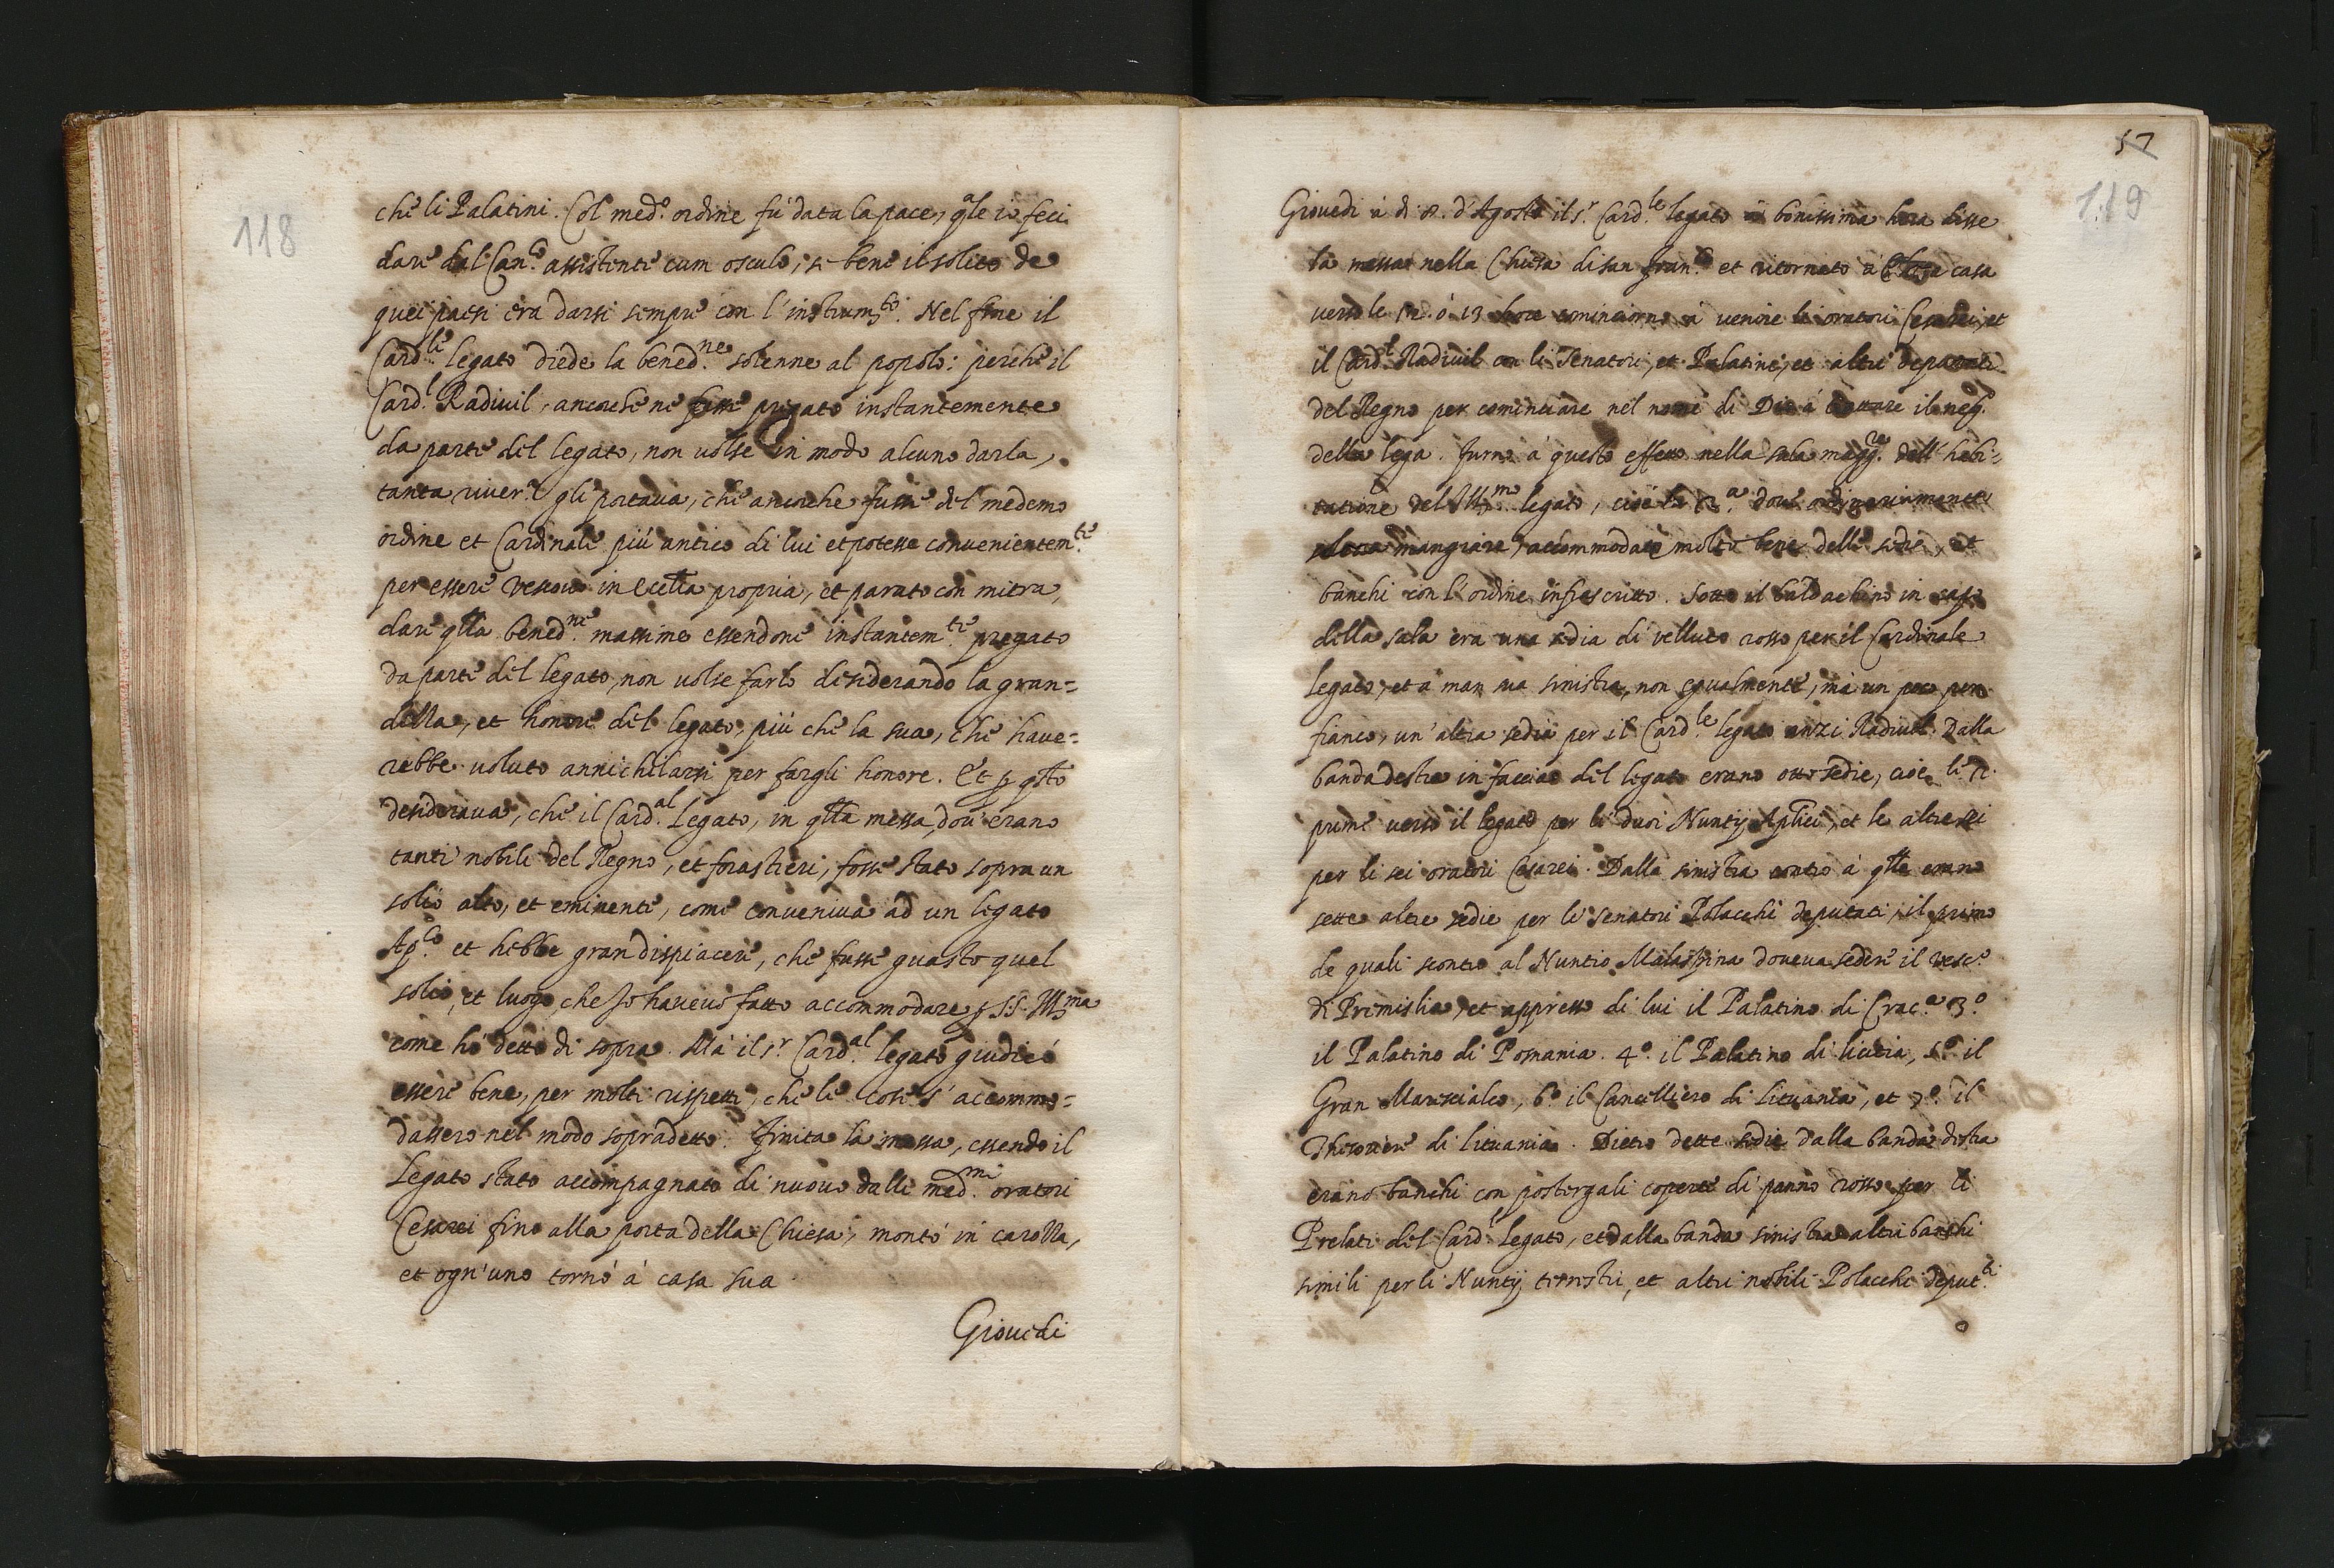 118
che li Palatini. Col med.º ordine fù data la pace, qle io feci
dare dal Can.co assistente cum osculo, se bene il solito de
quei paesi era darsi sempre con l'instrum.to. Nel fine il
Card.le legato diede la bened.ne solenne al popolo: perche il
Card.l Radiuil, ancorche ne fosse pregato instantemente
da parte del legato, non uolse in modo alcuno darla,
tanta river.a gli portaua, che ancorche fusse del medemo
ordine et Cardinale più antico di lui et potesse convenientem.te
per essere vescouo in Eccl'ia propria, et parato con mitra,
dare qlla bened.ne massime essendone instantem.te pregato
da parte del legato, non uolse farlo desiderando la gran=
dezza, et honore del legato, più che la sua, che haue=
rebbe uoluto annichilarsi per fargli honore. Et p qsto
desideraua, che il Card.al Legato, in qlla messa, dou'erano
tanti nobili del Regno, et forastieri, fosse stato sopra un
solio alto, et eminente, come conueniua ad un legato
Ap.co et hebbe gran dispiacere, che fusse guasto quel
solio, et luogo, che Io haueuo fatto accommodare p SS. Ill.ma
come hò detto di sopra. Mà il s.r Card.al legato giudicò
essere bene, per molti rispetti, che le cose s'accommo=
dassero nel modo sopradetto. Finita la messa, essendo il
Legato stato accompagnato di nuouo dalli med.mi oratori
Cesarei fino alla porta della Chiesa, montò in carozza,
et ogn'uno tornò à casa sua
Giouedi
57
119
Giouedi à di 8. d'Agosto il s.r Card.le legato à bonissima hora disse
la messa nella Chiesa di san Fran.co et ritornato à casa
verso le 12. ò 13 hore cominciorno à venire li oratori Cesarei, et
il Card.l Radiuil con li Senatori, et Palatini, et altri deputati
del Regno per cominciare nel nome di Dio à trattare il neg.º
della lega. Furno à questo effetto nella sala magg.re dell'habi=
tatione del Ill.mo legato, cioè la p.a doue ordinariamente
mangiare, accommodate molto bene delle sedie, et
banchi con l'ordine infrascritto. Sotto il baldachino in capo
della sala era una sedia di velluto rosso per il Cardinale
legato, et à man sua sinistra, non egualmente, mà un poco per
fianco, un'altra sedia per il Card.le legato anzi Radiuil. Dalla
banda destra in faccia del legato erano otto sedie, cioè le 2.
prime verso il legato per li duoi Nuntij Ap'lici, et le altre sei
per li sei oratori Cesarei. Dalla sinistra contro à qlle erano
sette altre sedie per li Senatori Polacchi deputati, il primo
de quali scontro al Nuntio Malaspina doueua sedere il vesc.º
di Premislia, et appresso di lui il Palatino di Crac.a 3.º
il Palatino di Posnania. 4.º il Palatino di Siradia, 5.º il
Gran Maresciallo, 6.º il Cancelliero di Lituania, et 7.º il
Thesoriere di Lituania. Dietro dette sedie dalla banda destra
erano banchi con postergali coperti di panno rosso per li
Prelati del Card.l Legato, et dalla banda sinistra altri banchi
simili per li Nuntij terrestri, et altri nobili Polacchi deput.ti